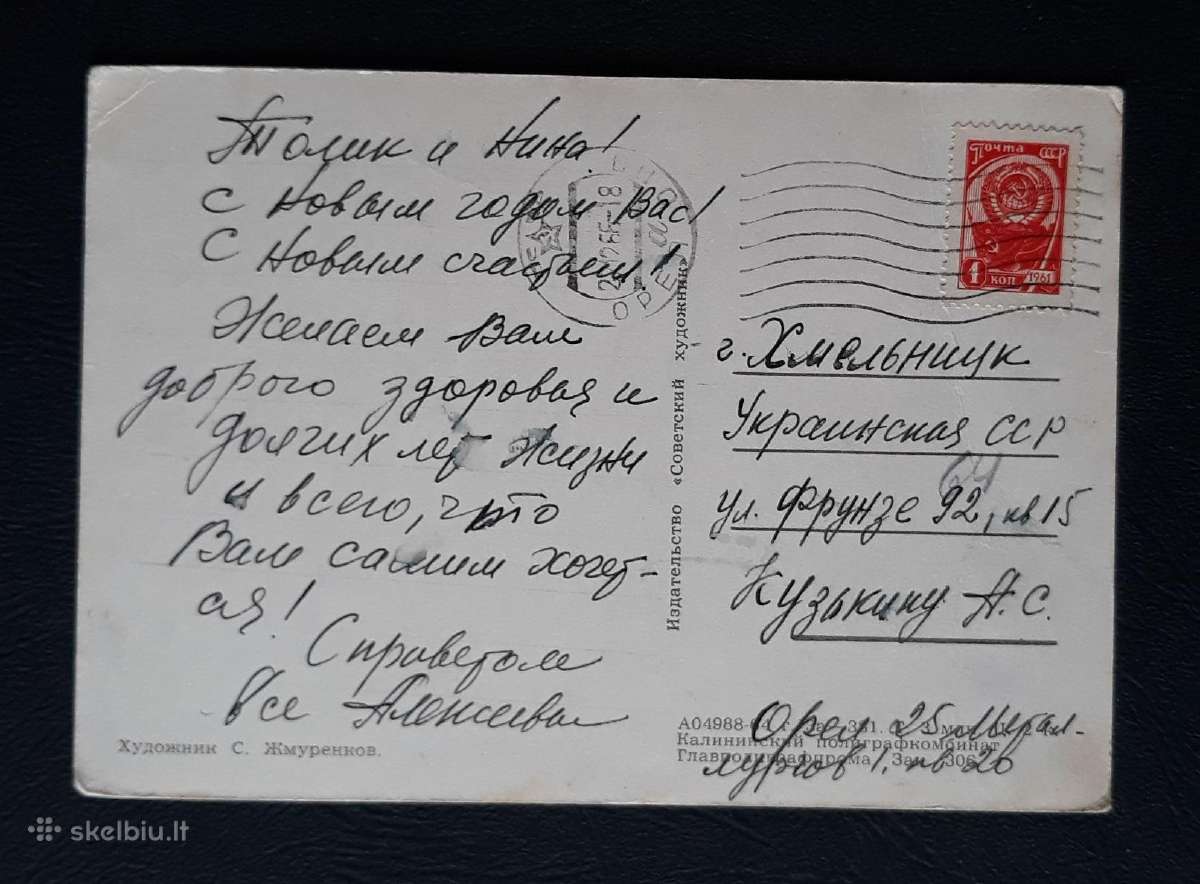 Толик и Нина!
С Новым годом Вас!
С Новым счастьем!
Желаем Вам
доброго здоровья и
долгих лет жизни
и всего, что
Вам самим хочет-
ся!
С приветом
все Алексеевы
Художник С. Жмуренков.
Издательство «Советский художник»
ОРЕЛ
Почта СССР
4 коп 1961
г. Хмельницк
Украинская ССР
64
ул. Фрунзе 92, кв 15
Кузькину А. С.
Орел 25 Метал-
лургов 1. кв 20
А04988-64 г.
Калининский полиграфкомбинат
Главполиграфпрома. Зак. 306
skelbiu.lt